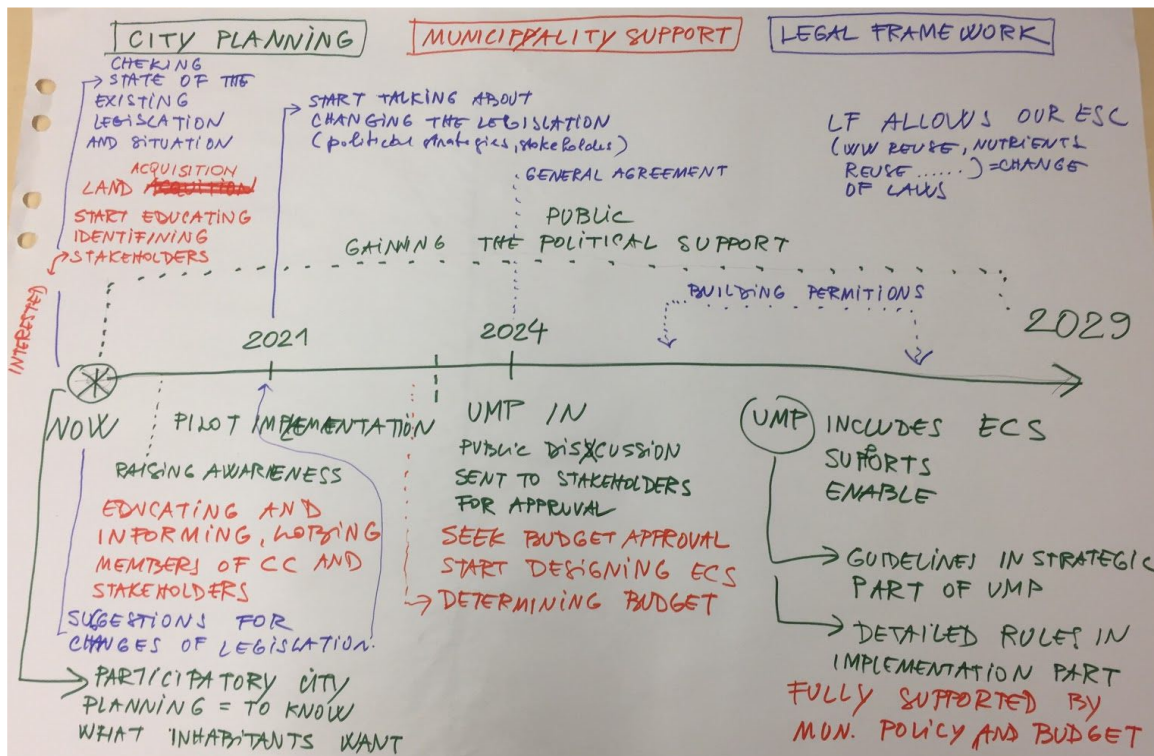 CITY PLANNING
MUNICIPALITY SUPPORT
LEGAL FRAMEWORK
CHEKING
STATE OF THE
EXISTING
LEGISLATION
AND SITUATION
ACQUISITION
LAND
START EDUCATING
IDENTIFINING
STAKEHOLDERS
INTERESTED
START TALKING ABOUT
CHANGING THE LEGISLATION
(political strategies, stakeholdes)
GENERAL AGREEMENT
LF ALLOWS OUR ESC
(WW REUSE, NUTRIENTS
REUSE ......) =CHANGE
OF LAWS
PUBLIC
GAINING THE POLITICAL SUPPORT
BUILDING PERMITIONS
2021
2024
2029
NOW
PILOT IMPLEMENTATION
RAISING AWARENESS
EDUCATING AND
INFORMING, LOBING
MEMBERS OF CC AND
STAKEHOLDERS
SUGESTIONS FOR
CHANGES OF LEGISLATION.
PARTICIPATORY CITY
PLANNING = TO KNOW
WHAT INHABITANTS WANT
UMP IN
PUBLIC DISCUSSION
SENT TO STAKEHOLDERS
FOR APPRUVAL
SEEK BUDGET APPROVAL
START DESIGNING ECS
DETERMINING BUDGET
UMP INCLUDES ECS
SUPORTS
ENABLE
GUIDELINES IN STRATEGIC
PART OF UMP
DETAILED RULES IN
IMPLEMENTATION PART
FULLY SUPPORTED BY
MUN. POLICY AND BUDGET